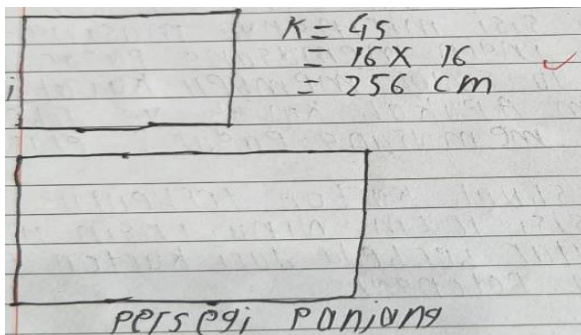 K = 4s
= 16 X 16
= 256 cm
i
persegi panjang